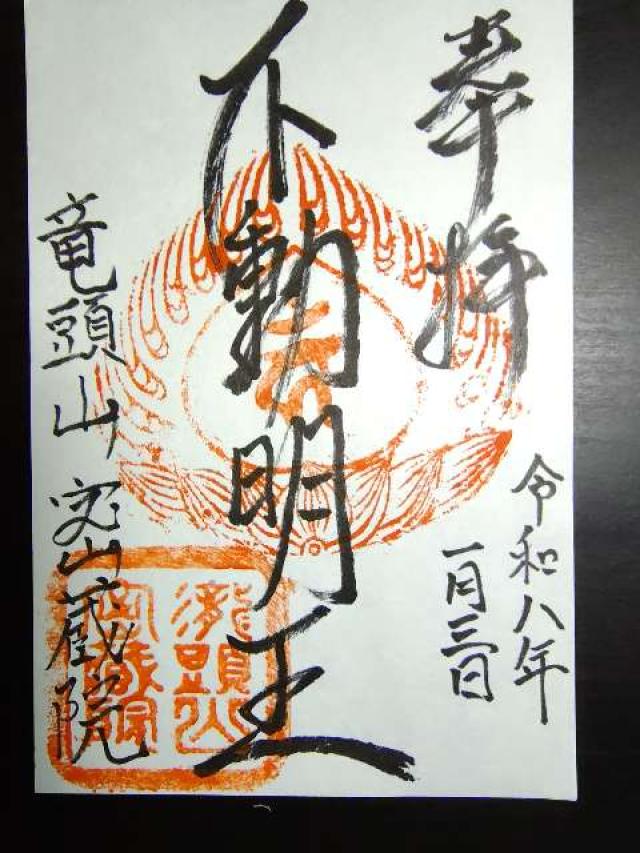 奉拝
令和八年
一月三日
不動明王
竜頭山 密蔵院